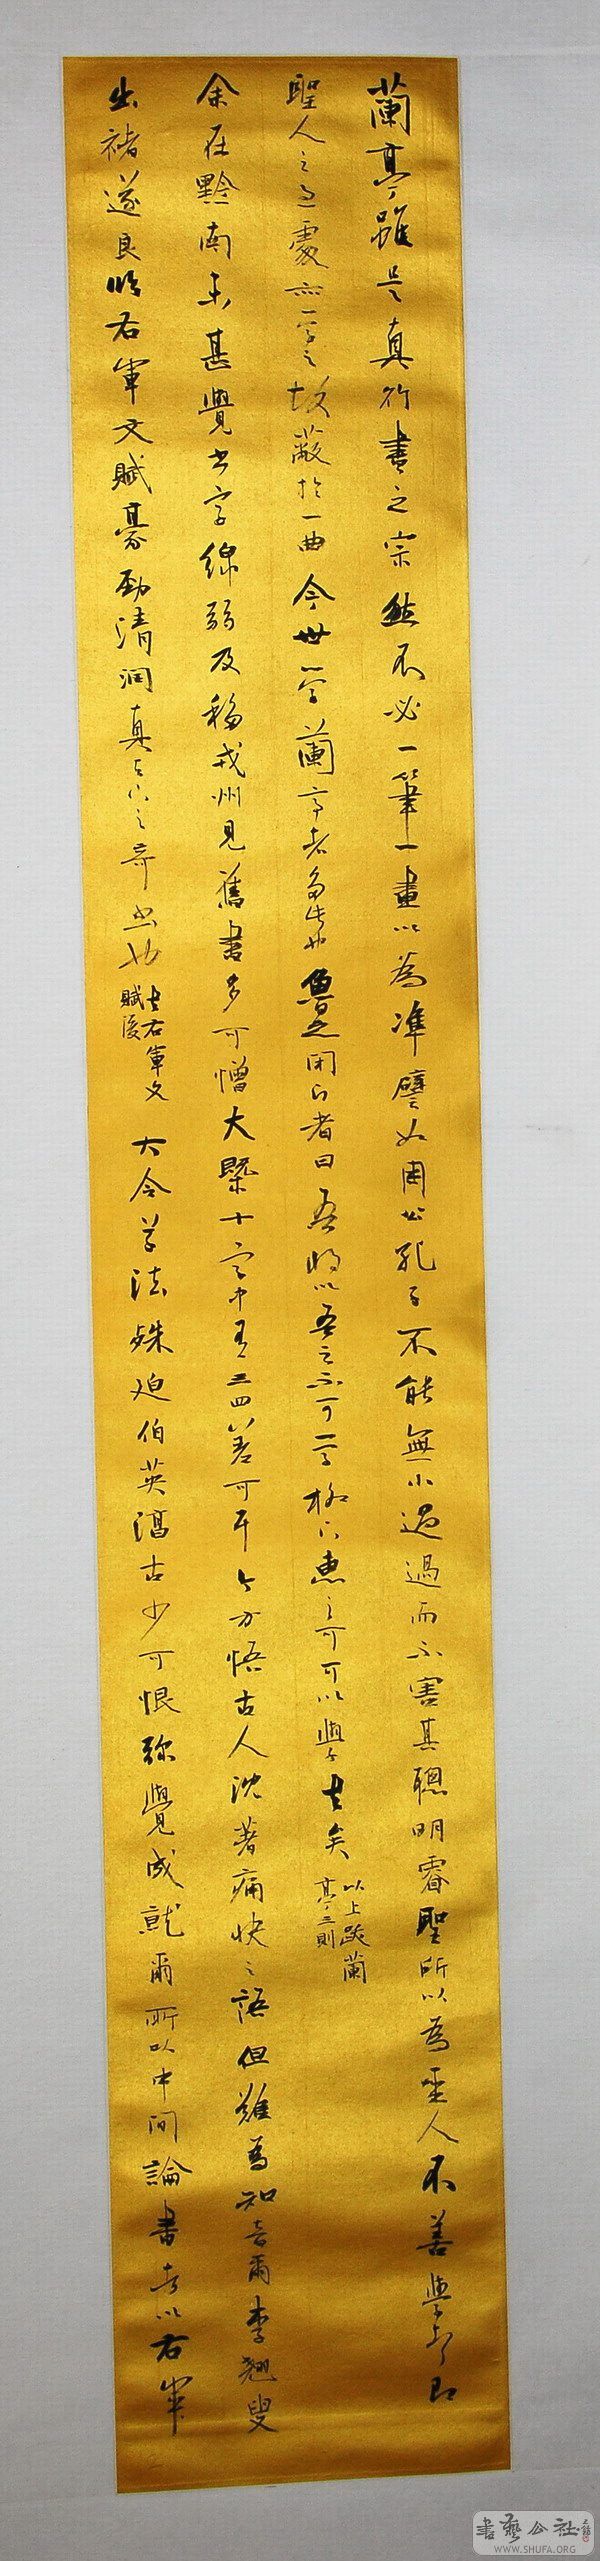 蘭亭雖是真行書之宗然不必一筆一畫以為准譬如周公孔子不能無小過過而不害其聰明睿聖所以為聖人不善學者即
聖人之過處而學之故蔽於一曲今世學蘭亭者多此也魯之閉門者曰吾將以吾之不可學柳下惠之可可以學書矣
以上跋蘭
亭三則
余在黔南未甚覺書字綿弱及移戎州見舊書多可憎大概十字中有三四差可耳今方悟古人沈著痛快之語但難為知音爾李翹叟
出褚遂良臨右軍文賦豪勁清潤真天下之奇書也
書右軍文
賦後
大令草法殊迫伯英淳古少可恨弥覺成就爾所以中間論書者以右軍
書藝公社
WWW.SHUFA.ORG